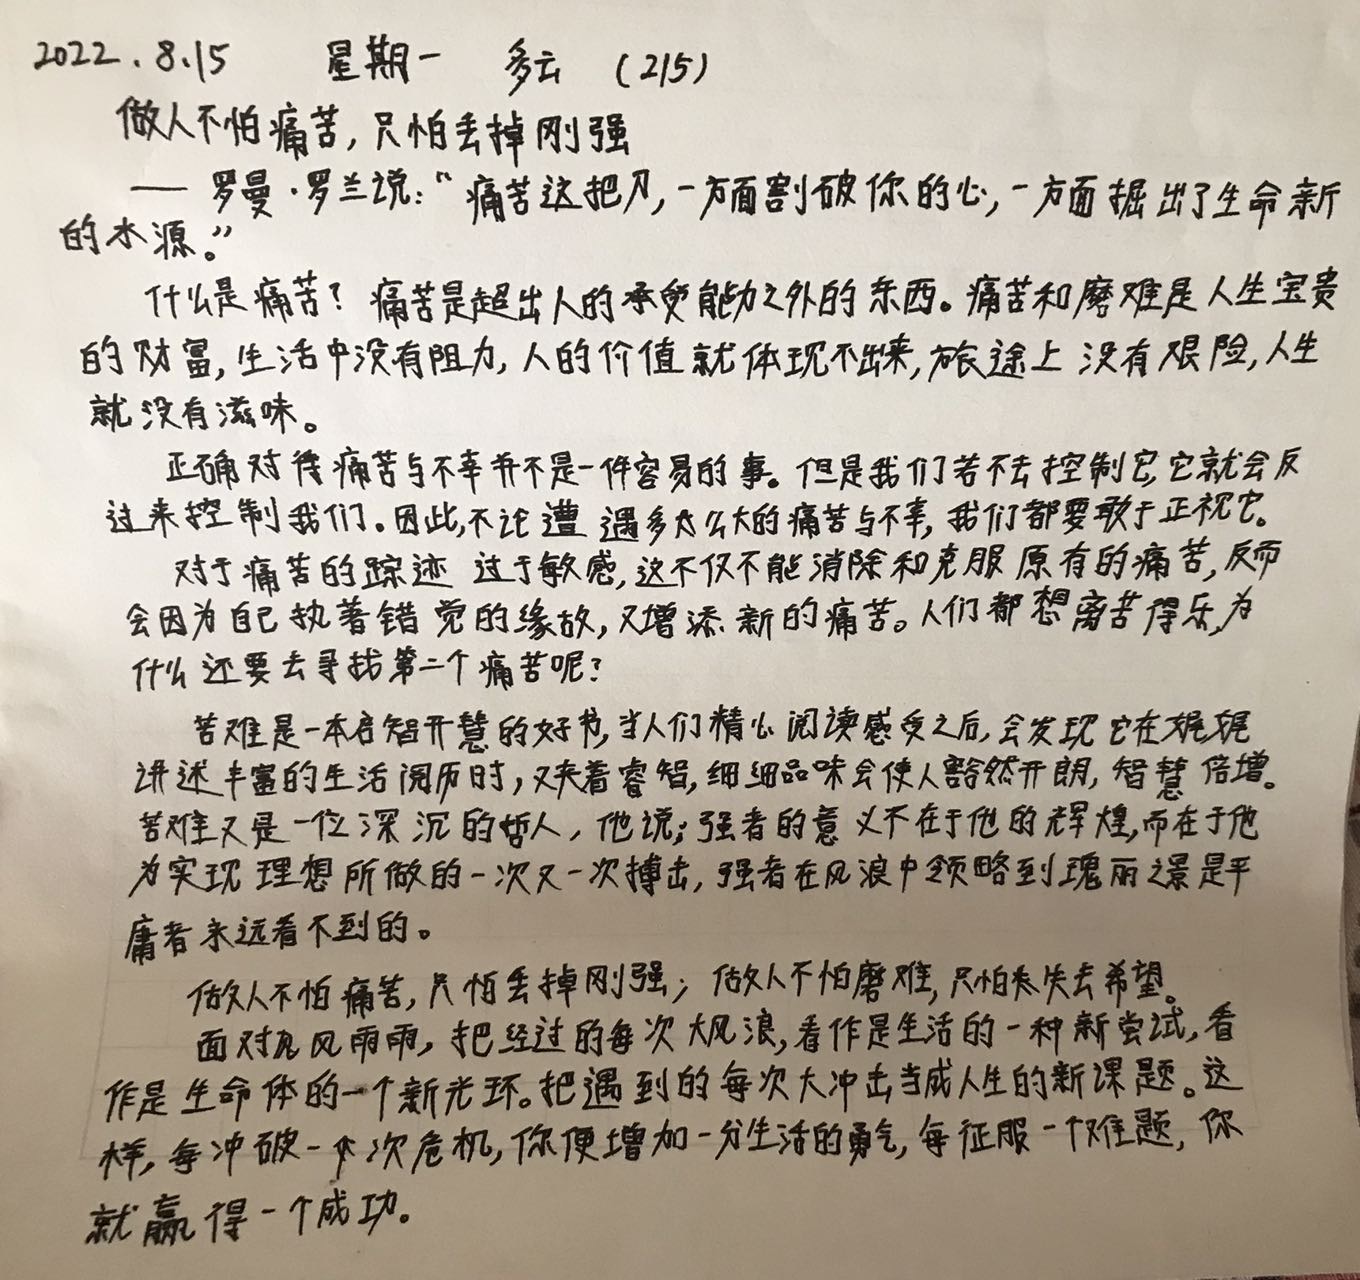 2022.8.15 星期一 多云 (215)
做人不怕痛苦,只怕丢掉刚强
—— 罗曼·罗兰说:“痛苦这把刀,一方面割破你的心,一方面掘出了生命新
的水源。”
什么是痛苦?痛苦是超出人的承受能力之外的东西。痛苦和磨难是人生宝贵
的财富,生活中没有阻力,人的价值就体现不出来,旅途上没有艰险,人生
就没有滋味。
正确对待痛苦与不幸并不是一件容易的事。但是我们若不去控制它,它就会反
过来控制我们。因此,不论遭遇多么大的痛苦与不幸,我们都要敢于正视它。
对于痛苦的踪迹过于敏感,这不仅不能消除和克服原有的痛苦,反而
会因为自己执著错觉的缘故,又增添新的痛苦。人们都想离苦得乐,为
什么还要去寻找第二个痛苦呢?
苦难是一本启智开慧的好书,当人们精心阅读感受之后,会发现它在娓娓
讲述丰富的生活阅历时,又夹着睿智,细细品味会使人豁然开朗,智慧倍增。
苦难又是一位深沉的哲人,他说;强者的意义不在于他的辉煌,而在于他
为实现理想所做的一次又一次搏击,强者在风浪中领略到瑰丽之景是平
庸者永远看不到的。
做人不怕痛苦,只怕丢掉刚强;做人不怕磨难,只怕失去希望。
面对风风雨雨,把经过的每次大风浪,看作是生活的一种新尝试,看
作是生命体的一个新光环。把遇到的每次大冲击当成人生的新课题。这
样,每冲破一次危机,你便增加一分生活的勇气,每征服一个难题,你
就赢得一个成功。